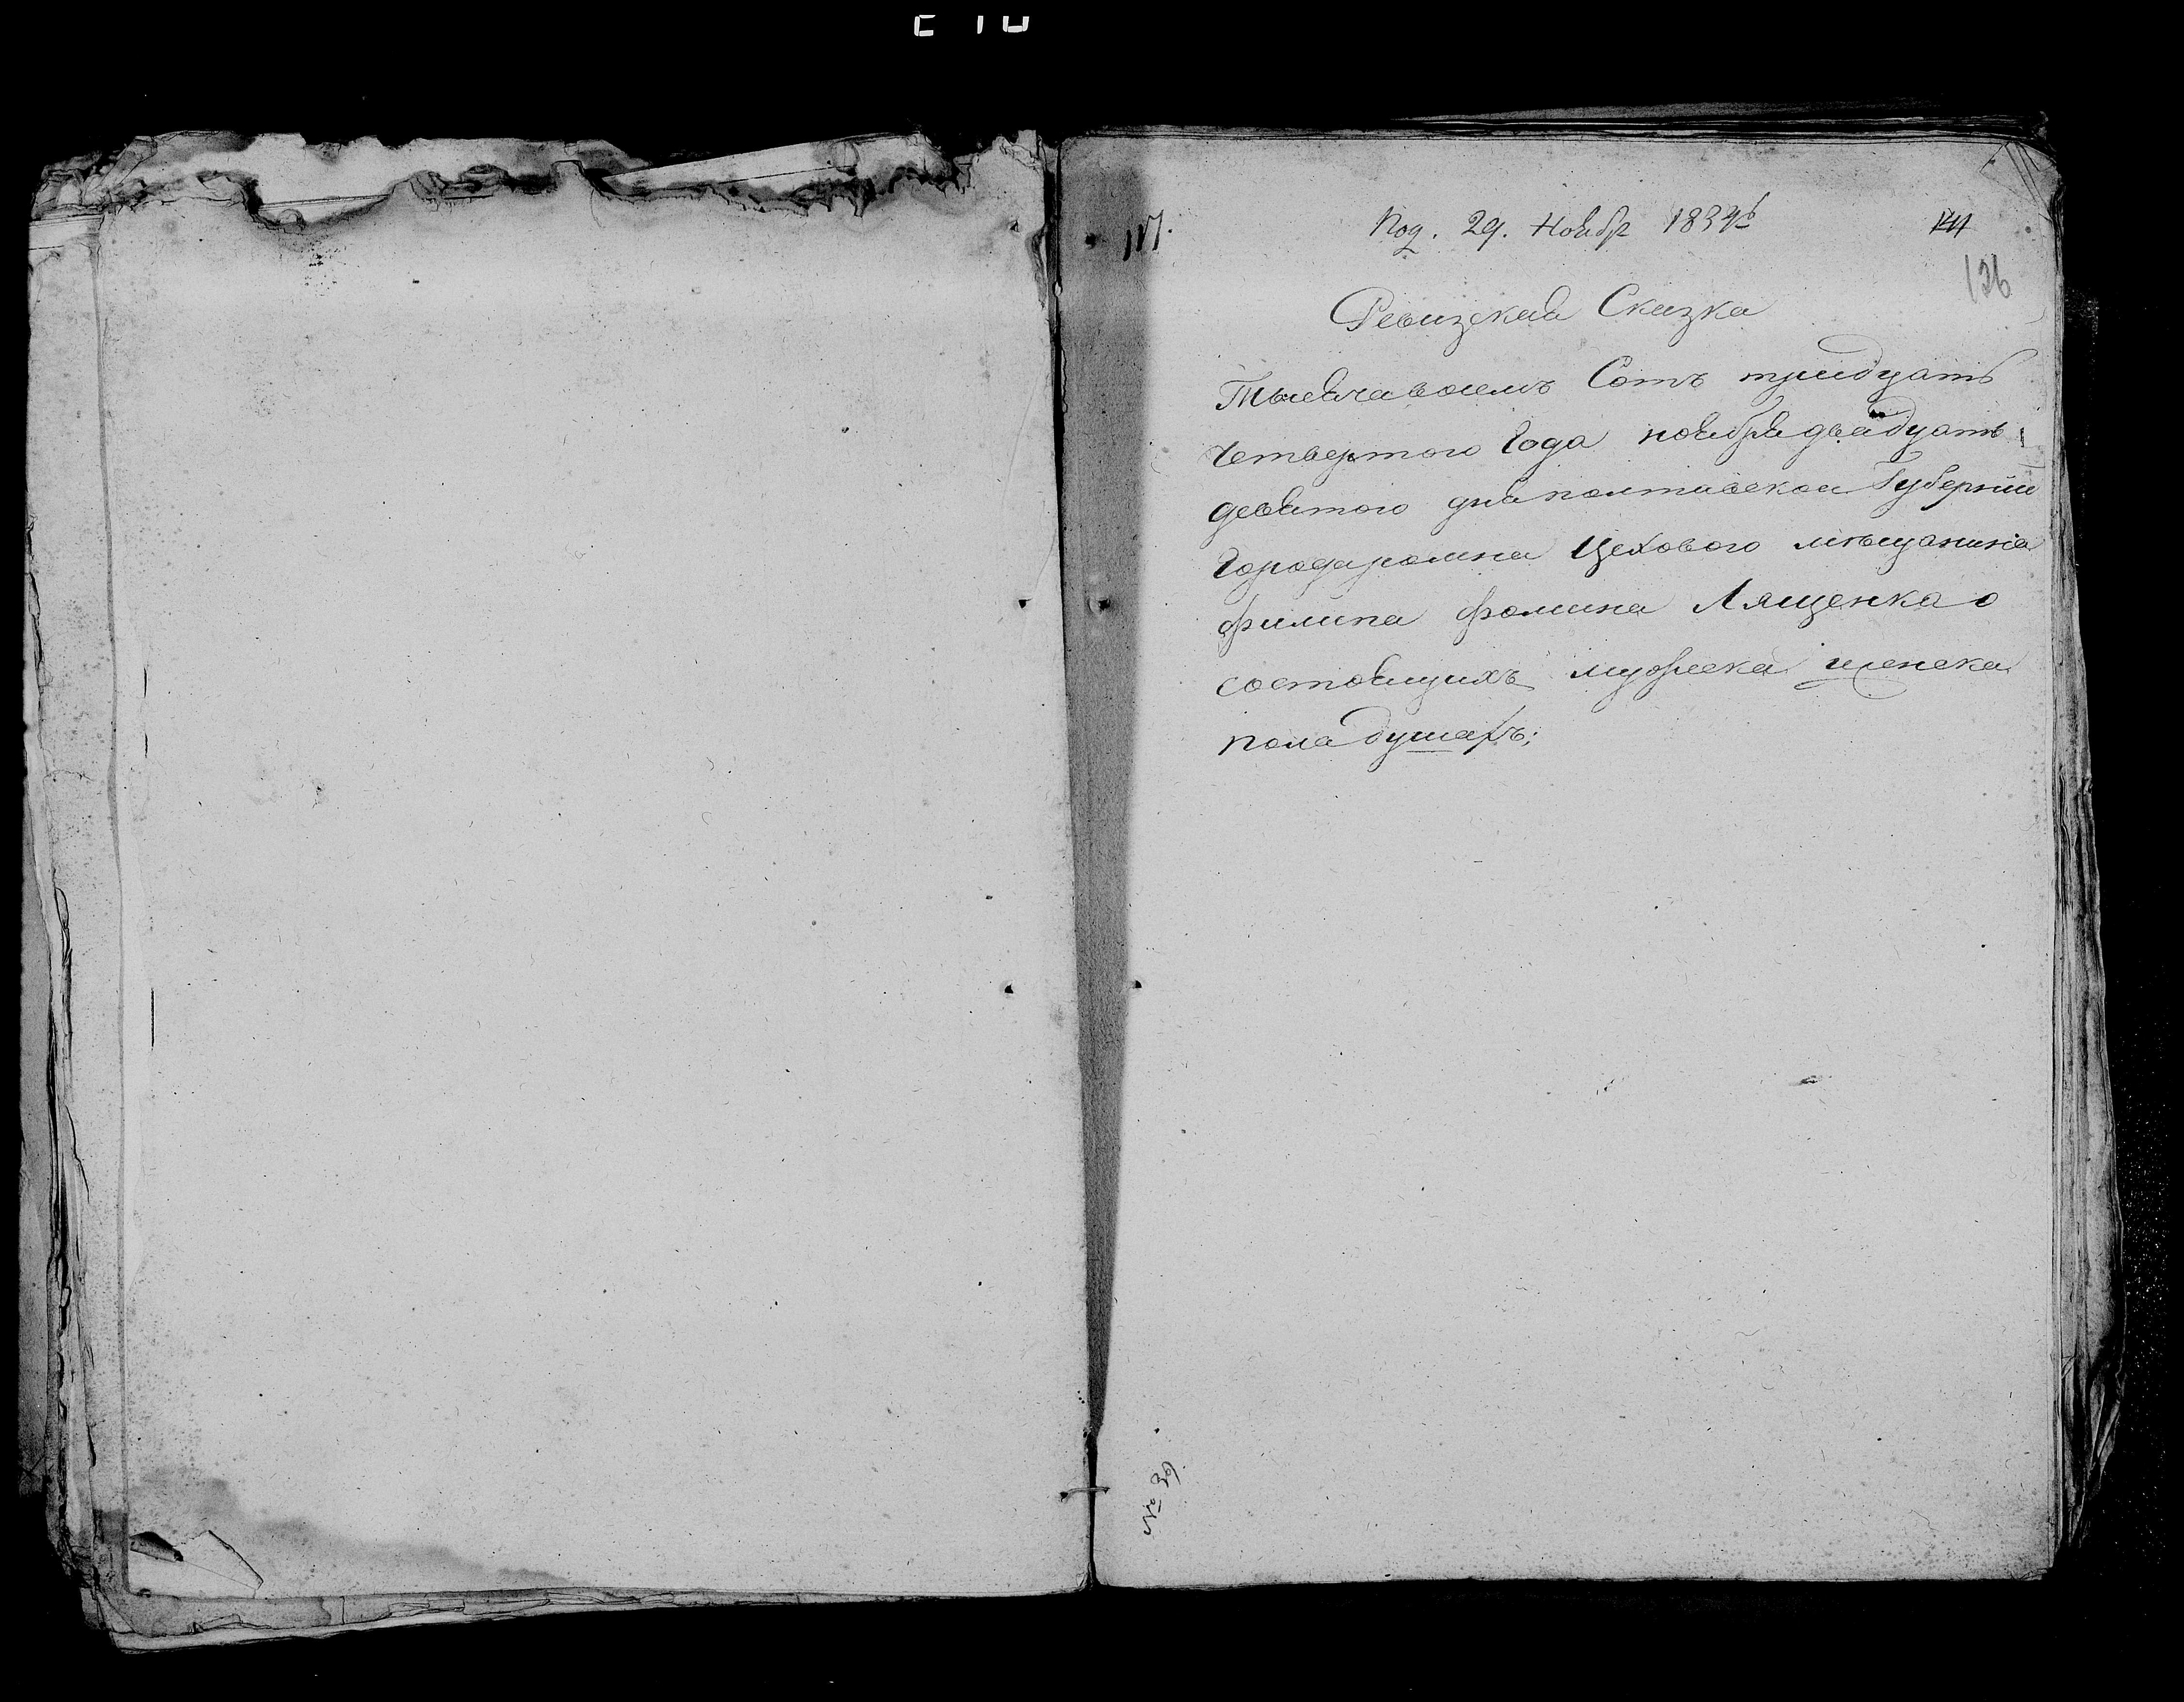 Под. 29. Ноябр 1834
126
Ревизская Сказка
Тысяча восемъ Сотъ тридцать
четвертого Года ноября двадцать
девятого дня полтавской Губернии
Города ромна Цехового мѣщанина
филипа фомина Лященка о
состоящихъ мужеска и женска
пола душахъ;
№ 39.